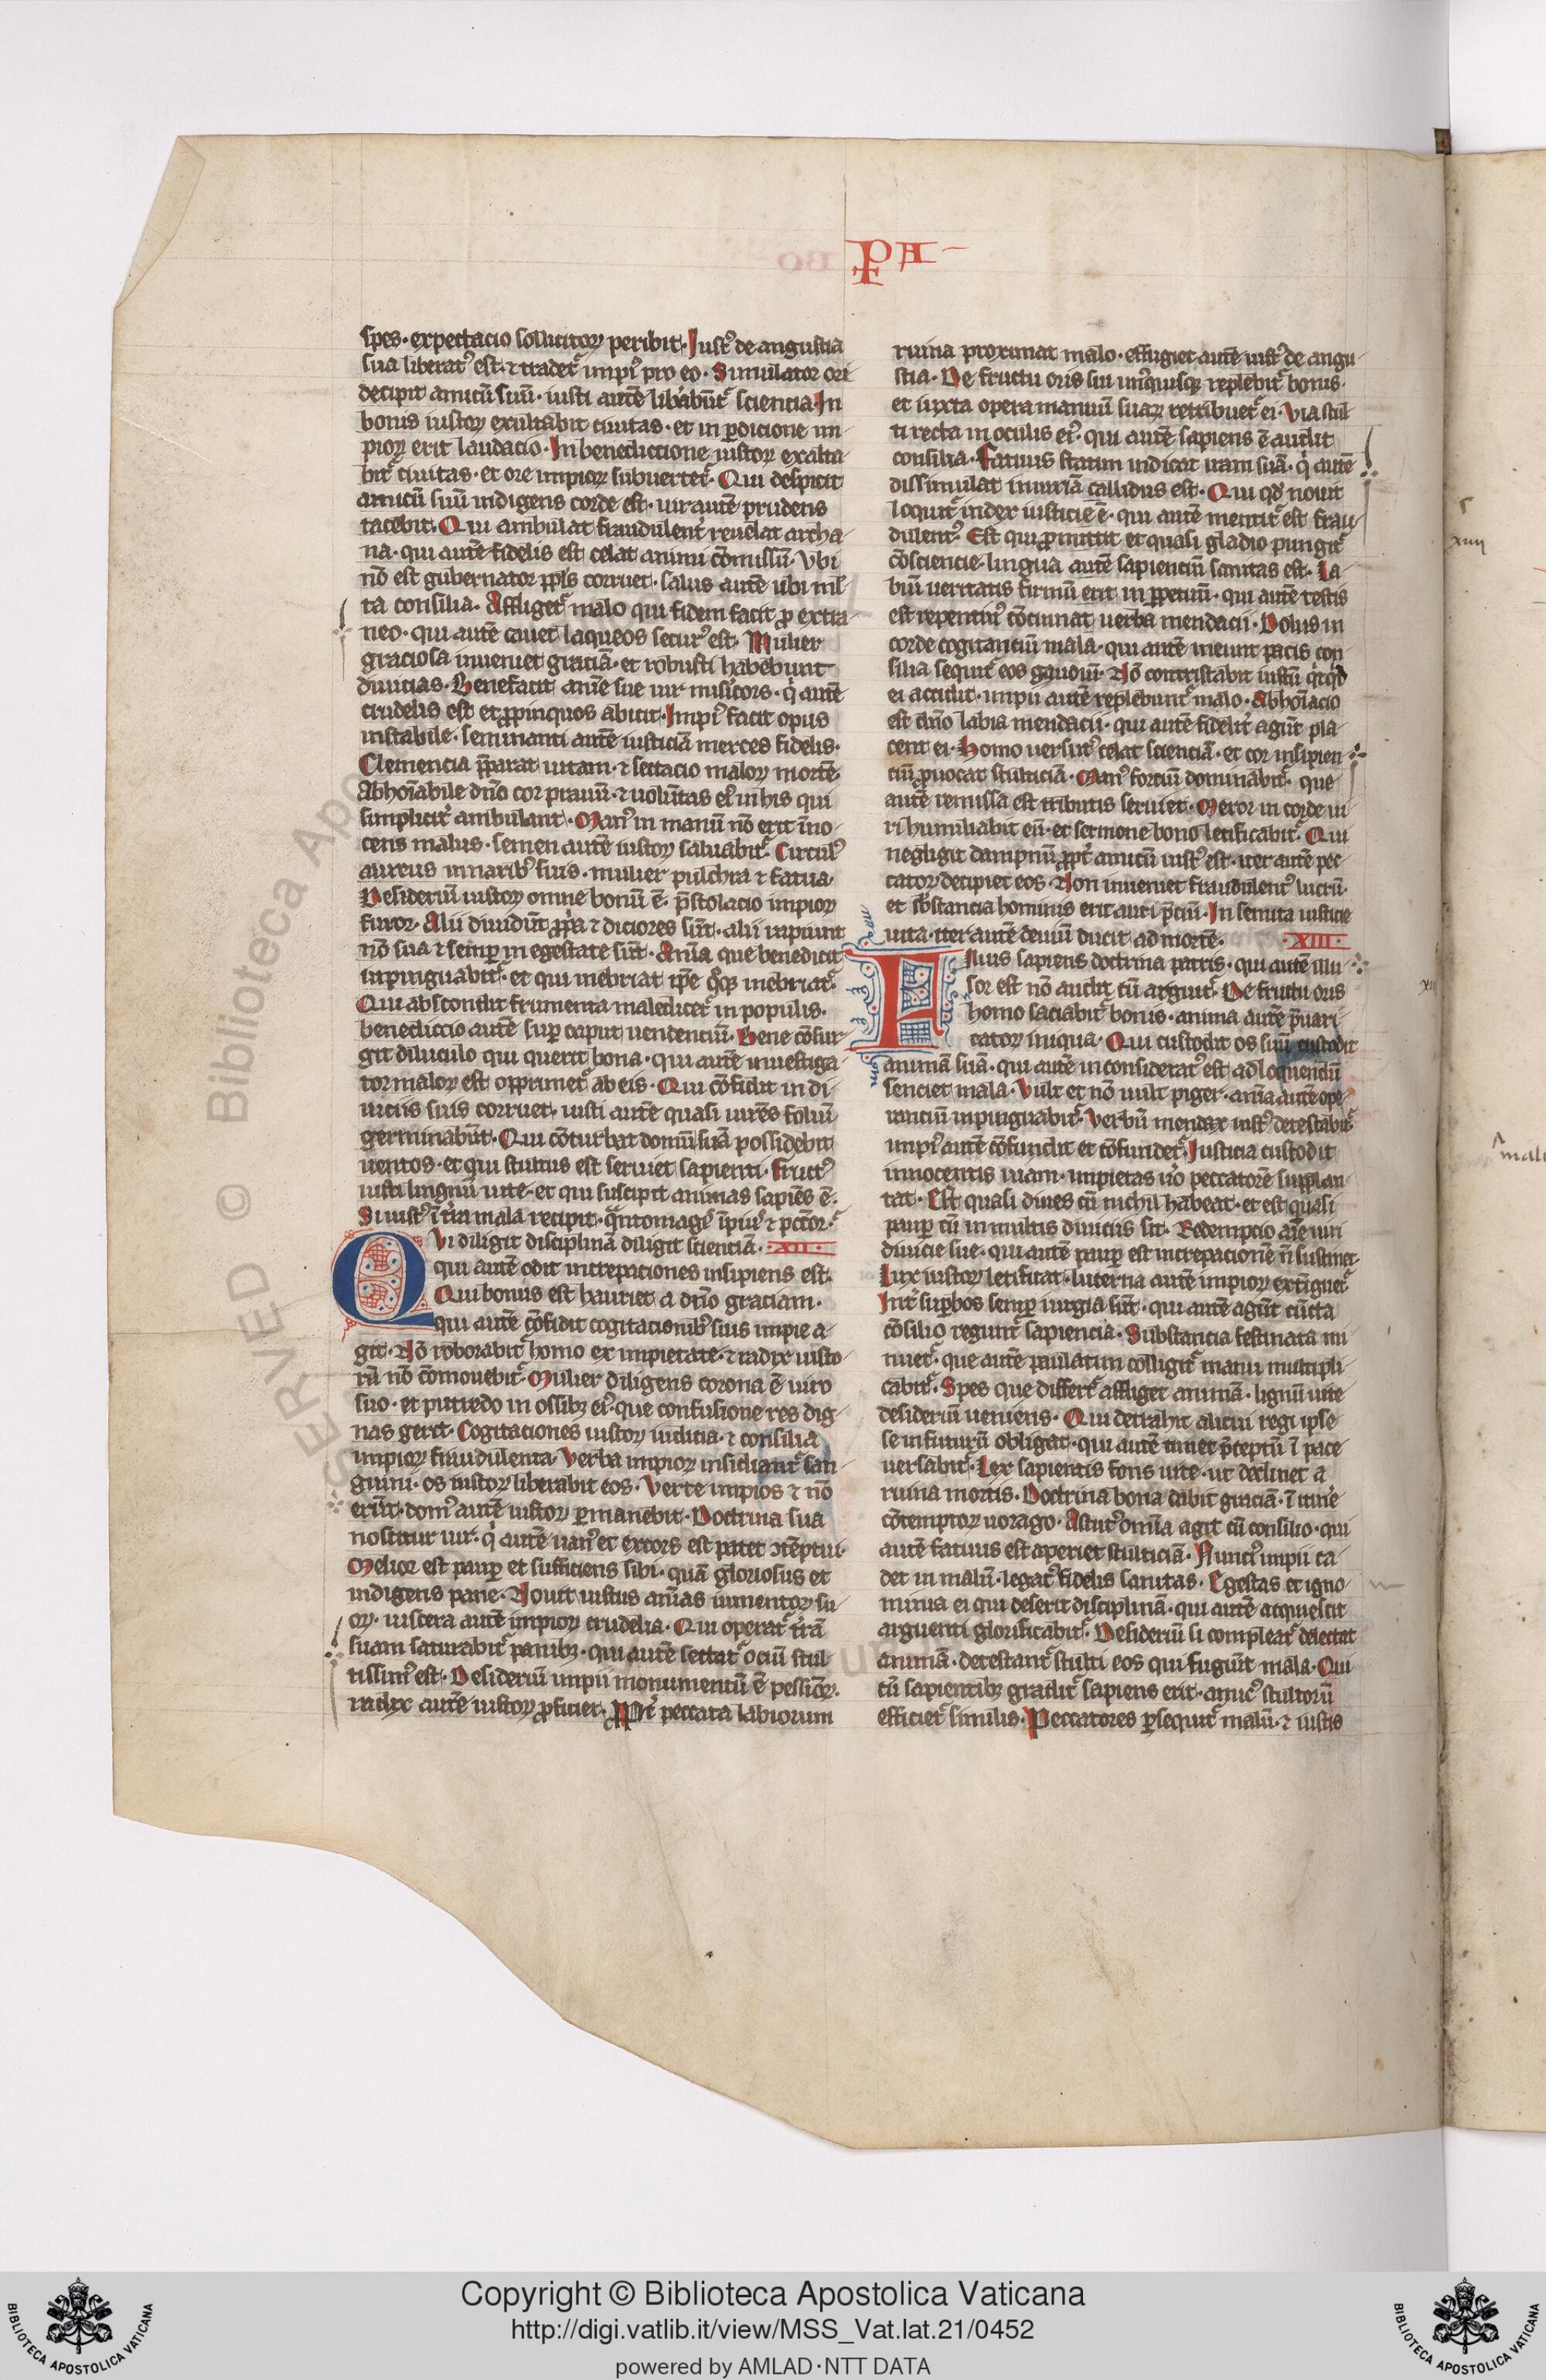 PA
spes· expectacio sollicitoꝝ peribit· Iustꝰ de angustia
sua liberatꝰ est· ⁊ tradet᷑ impiꝰ pro eo· Simulator ore
decipit amicū suū· iusti autē lib̾abūt᷑ sciencia· In
bonis iustoꝝ exultabit ciuitas· et in ꝑdicione im-
pioꝝ erit laudacio· In benediccione iustoꝝ exalta-
bit᷑ ciuitas· et ore impioꝝ subuertet᷑· Qui despicit
amicū suū indigens corde est· uir autē prudens
tacebit· Qui ambulat fraudulent̾ reuelat archa-
na· qui autē fidelis est celat animi cōmissū· Vbi
nō est gubernator ppl̄s corruet· salus autē ubi ml̄-
ta consilia· Affliget᷑ malo qui fidem facit ꝓ extra-
neo· qui autē cauet laqueos securꝰ est· Mulier
graciosa inueniet graciā· et robusti habebunt
diuicias· Benefacit anīe sue uir miśicors· q̇ autē
crudelis est et ꝓpinquos abicit· Impiꝰ facit opus
instabile· seminanti autē iusticiā merces fidelis·
Clemencia p̄parat uitam· ⁊ sectacio maloꝝ mortē·
Abhoīabile dn̄o cor prauū· ⁊ uolūtas eiꝰ in his qui
simplicit̾ ambulant· Manꝰ in manū nō erit īno-
cens malus· semen autē iustoꝝ saluabit᷑· Circulꝰ
aureus in naribꝰ suis· mulier pulchra ⁊ fatua·
Desideriū iustoꝝ omne bonū ē· p̄stolacio impioꝝ
furor· Alii diuidūt ꝓp̄a ⁊ diciores sūt· alii rapiunt
nō sua ⁊ semꝑ in egestate sūt· Anīa que benedicit
inpinguabit᷑· et qui inebriat ip̄e q̊ꝗ inebriat᷑·
Qui abscondit frumenta maledicet᷑ in populis·
benediccio autē suꝑ caput uendenciū· Bene cōsur-
git diluculo qui querit bona· qui autē inuestiga-
tor maloꝝ est opprimet᷑ ab eis· Qui cōfidit in di-
uiciis suis corruet· iusti autē quasi uirēs foliū
germinabūt· Qui cōturbat domū suā possidebit
uentos· et qui stultus est seruiet sapienti· Fructꝰ
iusti lingnū uite· et qui suscipit animas sapiēs ē·
Si iustꝰ ī t̄ra mala recipit· q̄ntomagꝭ īpiꝰ ⁊ pctōr·
QVi diligit disciplinā diligit scienciā· ·XII·
qui autē odit increpaciones insipiens est·
Qui bonus est hauriet a dn̄o graciam·
qui autē cōfidit cogitacionibꝰ suis impie a-
git· Nō roborabit᷑ homo ex impietate· ⁊ radix iusto-
rū nō cōmouebit᷑· Mulier diligens corona ē uiro
suo· et putredo in ossibꝫ eiꝰ· que confusione res dig-
nas gerit· Cogitaciones iustoꝝ iudicia· ⁊ consilia
impioꝝ fraudulenta· Verba impioꝝ insidiant᷑ san-
guini· os iustoꝝ liberabit eos· Verte impios ⁊ nō
erūt· domꝰ autē iustoꝝ ꝑmanebit· Doctrina sua
noscitur uir· q̇ autē uanꝰ et excors est patet ↄtēptui·
Melior est pauꝑ et sufficiens sibi· quā gloriosus et
indigens pane· Nouit iustus anīas iumentoꝝ su-
oꝝ· uiscera autē impioꝝ crudelia· Qui operat᷑ t̄rā
suam saturabit᷑ panibꝫ· qui autē sectat᷑ ociū stul-
tissimꝰ est· Desideriū impii monumentū ē pessīoꝝ·
radix autē iustoꝝ ꝓficiet· Ꝓpt̾ peccata labiorum
ruina proximat malo· effugiet autē iustꝰ de angu-
stia· De fructu oris sui unꝰquisqꝫ replebit᷑ bonis·
et iuxta opera manuū suaꝝ retribuet᷑ ei· Via stul-
ti recta in oculis eiꝰ· qui autē sapiens ē audit
consilia· Fatuus statim indicat iram suā· q̇ autē
dissimulat iniuriā callidus est· Qui qd̄ nouit
loquit᷑ index iusticie ē· qui autē mentit᷑ est frau-
dulentꝰ· Est qui ꝓmittit et quasi gladio pungit᷑
cōsciencie· lingua autē sapienciū sanitas est· La-
biū ueritatis firmū erit in ꝑpetuū· qui autē testis
est repentinꝰ cōcinnat uerba mendacii· Dolus in
corde cogitanciū mala· qui autē ineunt pacis con-
silia sequit᷑ eos gaudiū· Nō contristabit iustū qͥcqͥd
ei accidit· impii autē replebunt᷑ malo· Abhoīacio
est dn̄o labia mendacii· qui autē fidelit̾ agūt pla-
cent ei· Homo uersutꝰ celat scienciā· et cor insipien-
ciū ꝓuocat stulticiā· Manꝰ forciū dominabit᷑· que
autē remissa est tributis seruiet· Meror in corde ui-
ri humiliabit eū· et sermone bono letificabit᷑· Qui
negligit dampnū ꝓpt̾ amicū iustꝰ est· iter autē pec-
catoꝝ decipiet eos· Non inueniet fraudulentꝰ lucrū·
et sb̄stancia hominis erit auri p̄ciū· In semita iusticie
uita· iter autē deuiū ducit ad mortē· ·XIII·
Filius sapiens doctrina patris· qui autē illu-
sor est nō audit cū arguit᷑· De fructu oris
homo saciabit᷑ bonis· anima autē p̄uari-
catoꝝ iniqua· Qui custodit os suū custodit
animā suā· qui autē inconsideratꝰ est ad loquendū
senciet mala· Vult et nō uult piger· anīa autē ope-
ranciū inpinguabit᷑· Verbū mendax iustꝰ detestabit᷑
impiꝰ autē cōfundit et cōfundet᷑· Iusticia custodit
innocentis uiam· impietas u̾o peccatorē supplan-
tat· Est quasi diues cū nichil habeat· et est quasi
pauꝑ cū in multis diuiciis sit· Redempcio anīe uiri
diuicie sue· qui autē pauꝑ est increpacionē n̄ sustinet·
Lux iustoꝝ letificat· lucerna autē impioꝝ extīguet᷑·
Int̾ suꝑbos semꝑ iurgia sūt· qui autē agūt cūcta
cōsilio regunt᷑ sapiencia· Substancia festinata mi-
nuet᷑· que autē paulatim colligit᷑ manu multipli-
cabit᷑· Spes que differt᷑ affliget animā· lignū uite
desideriū ueniens· Qui detrahit alicui rei ipse
se in futurū obligat· qui autē timet p̄ceptū ī pace
uersabit᷑· Lex sapientis fons uite· ut declinet a
ruina mortis· Doctrina bona dabit graciā· ī itin̄e
cōtemptoꝝ uorago· Astutꝰ omīa agit cū consilio· qui
autē fatuus est aperiet stulticiā· Nuncꝰ impii ca-
det in malū· legatꝰ fidelis sanitas· Egestas et igno-
minia ei qui deserit disciplinā· qui autē acquiescit
arguenti glorificabit᷑· Desideriū si compleat᷑ delectat
animā· detestant᷑ stulti eos qui fugiūt mala· Qui
cū sapientibꝫ gradit᷑ sapiens erit· amicꝰ stultorū
efficiet᷑ similis· Peccatores ꝑsequit᷑ malū· ⁊ iustis
xiiii
malu
RESERVED © Biblioteca Apo
Copyright © Biblioteca Apostolica Vaticana
http://digi.vatlib.it/view/MSS_Vat.lat.21/0452
powered by AMLAD·NTT DATA
BIBLIOTECA APOSTOLICA VATICANA
BIBLIOTECA APOSTOLICA VATICANA